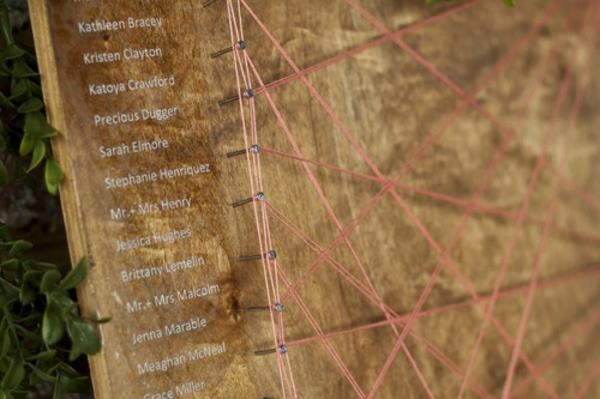 Kathleen Bracey
Kristen Clayton
Katoya Crawford
Precious Dugger
Sarah Elmore
Stephanie Henriquez
Mr.+ Mrs Henry
Jessica Hughes
Brittany Lemelin
Mr.+ Mrs Malcolm
Jenna Marable
Meaghan McNeal
Grace Miller